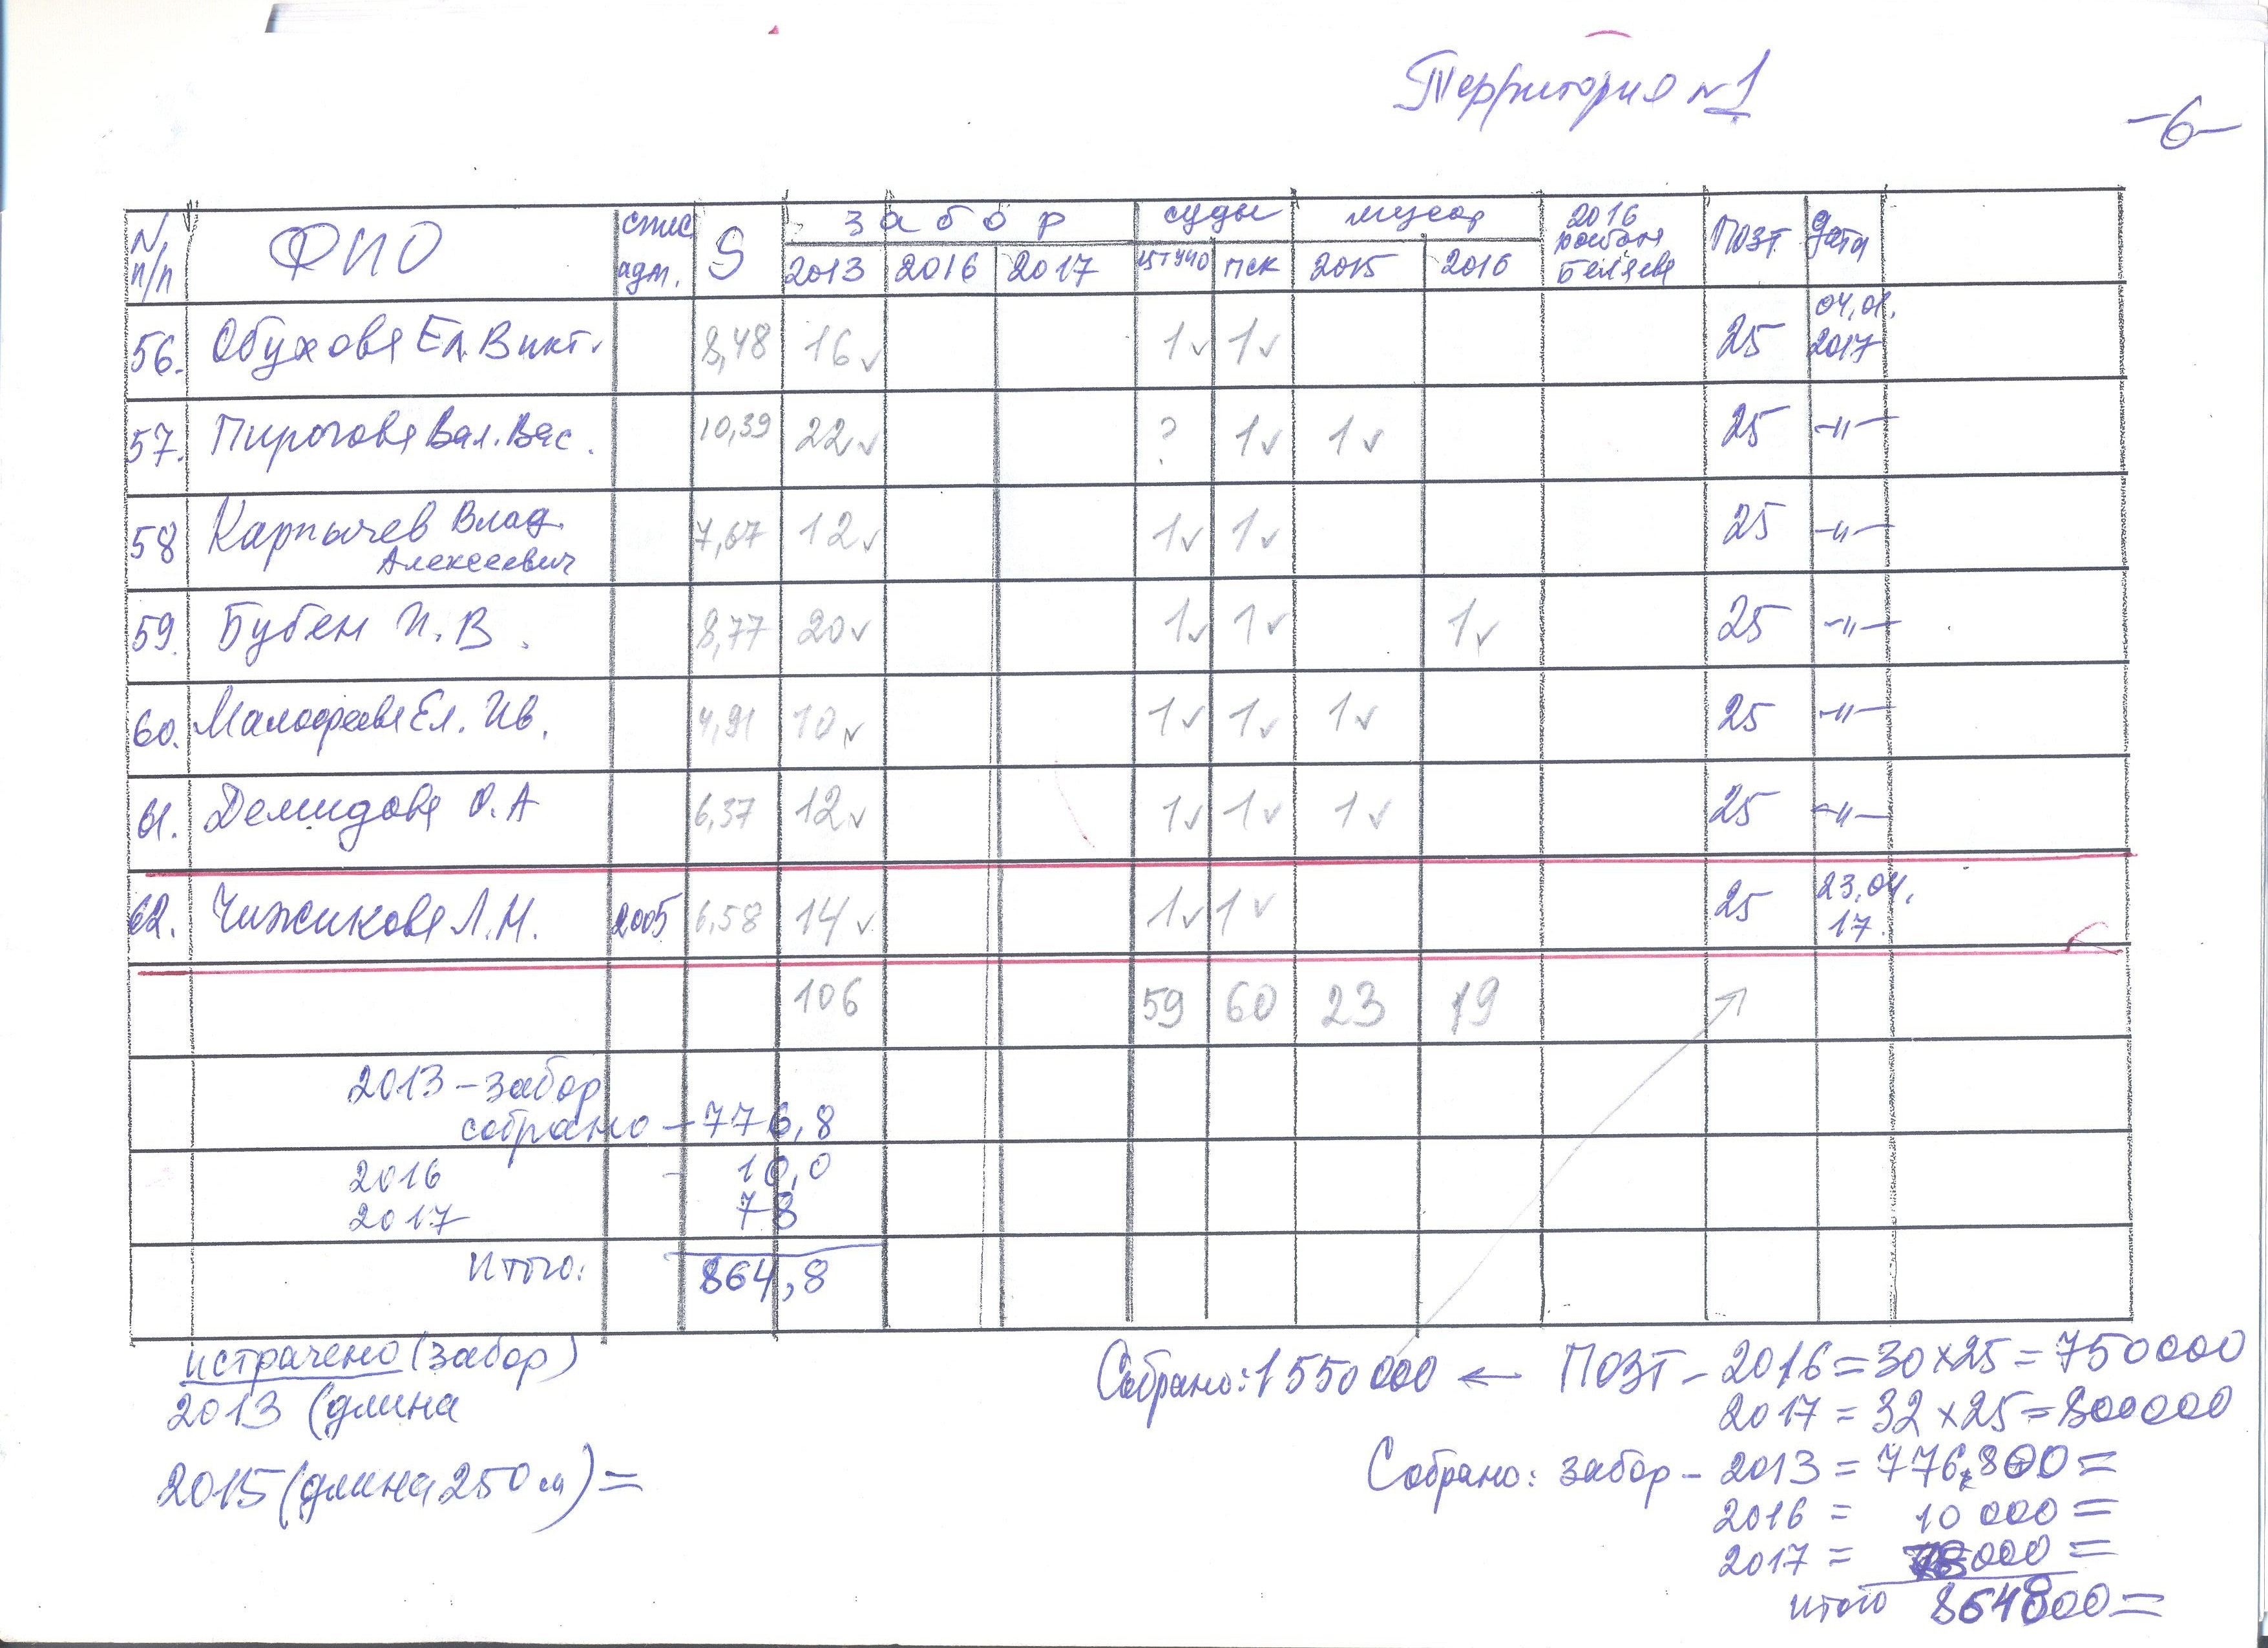 Территория №1
-6-
N п/п ФИО спис адм. S забор суды мусор 2016 Беляева ПОЗТ Дата
2013 2016 2017 ПСК 2015 2016
56. Обухова Ел. Викт. 8,48 16✓ 1✓ 1✓ 25 04.01.2017
57. Пирогова Вал. Вас. 10,39 22✓ ? 1✓ 1✓ 25 -"-
58 Карпычев Влад. Алексеевич 7,67 12✓ 1✓ 1✓ 25 -"-
59. Бубен И. В. 8,77 20✓ 1✓ 1✓ 1✓ 25 -"-
60. Малофеева Ел. Ив. 4,91 10✓ 1✓ 1✓ 1✓ 25 -"-
61. Демидова О. А 6,37 12✓ 1✓ 1✓ 1✓ 25 -"-
62. Чижикова Л. Н. 2005 6,58 14✓ 1✓ 1✓ 25 23.04.17.
106 59 60 23 19
2013 - забор
собрано - 776,8
2016 - 10,0
2017 78
Итого: 864,8
истрачено (забор)
2013 (длина
2015 (длина 250 м) =
Собрано: 1550000 ← ПОЗТ - 2016 = 30 x 25 = 750000
2017 = 32 x 25 = 800000
Собрано: забор - 2013 = 776,800 =
2016 = 10 000 =
2017 = 78000 =
итого 864800 =